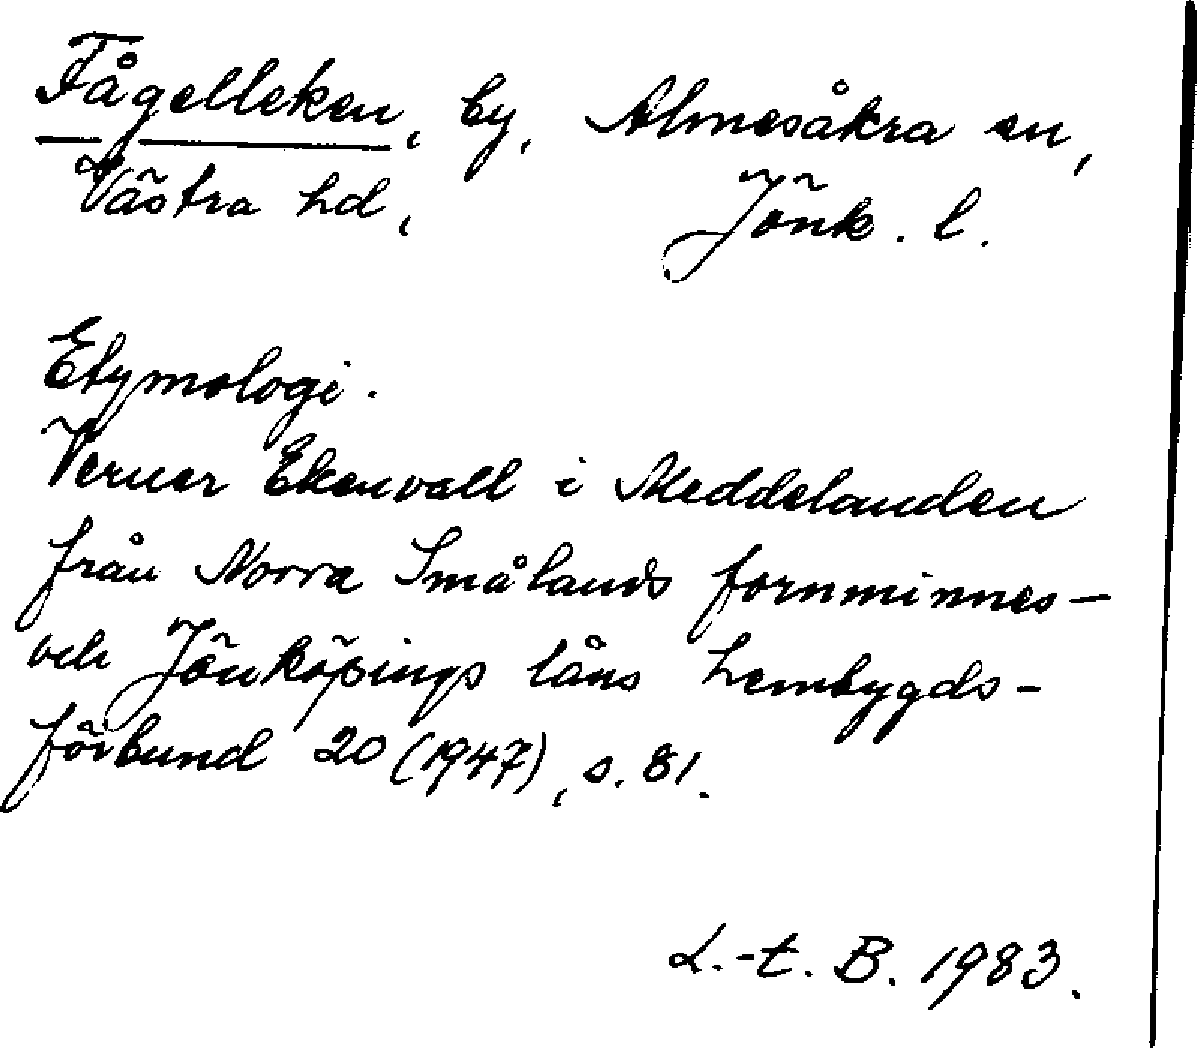 Fågelleken, by, Almesåkra sn,
Västra hd, Jönk. l.
Etymologi.
Verner Ekenvall i Meddelanden
från Norra Smålands fornminnes-
och Jönköpings läns hembygds-
förbund 20 (1947), s. 81.
L.-t. B. 1983.